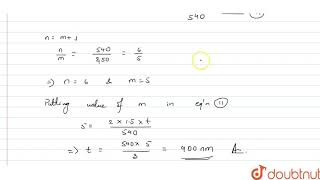 540
n = m+1
n/m = 540/450 = 6/5
⇒ n = 6 & m = 5
Putting value of m in eqn (11)
5 = 2 × 1.5 × t / 540
⇒ t = 540 × 5 / 3 = 900 nm A
doubtnut